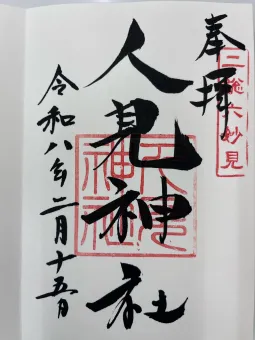 奉拝
上総六妙見
人見神社
人見神社
令和八年二月十五日